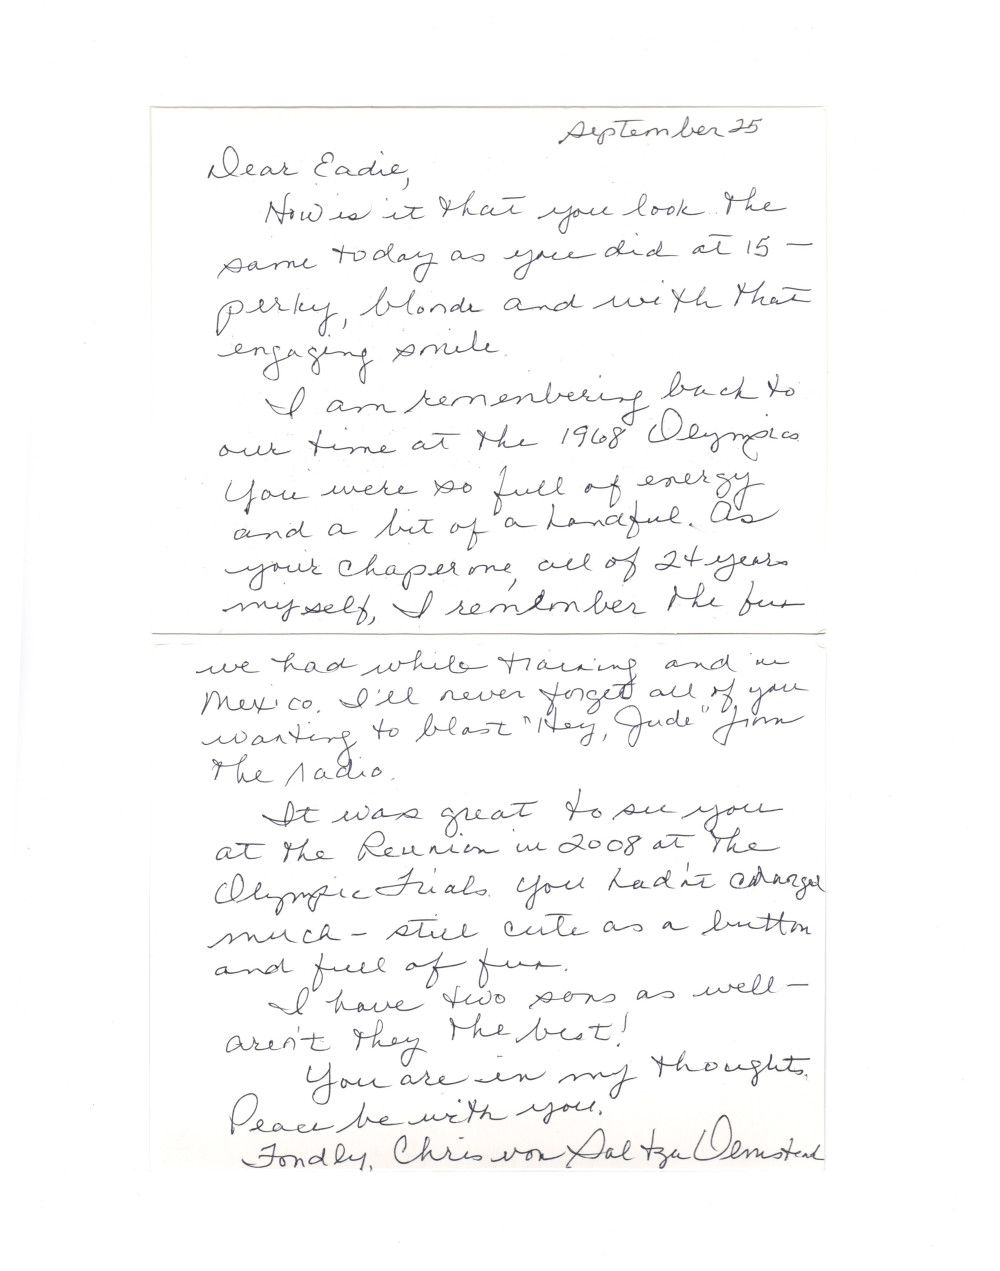 September 25
Dear Eadie,
How is it that you look the
same today as you did at 15 —
perky, blonde and with that
engaging smile.
I am remembering back to
our time at the 1968 Olympics
You were so full of energy
and a bit of a handful. As
your chaperone, all of 24 years
myself, I remember the fun
we had while training and in
Mexico. I'll never forget all of you
wanting to blast "Hey, Jude" from
the radio.
It was great to see you
at the Reunion in 2008 at the
Olympic Trials. You hadn't changed
much — still cute as a button
and full of fun.
I have two sons as well —
aren't they the best!
You are in my thoughts.
Peace be with you.
Fondly, Chris von Saltza Olmstead